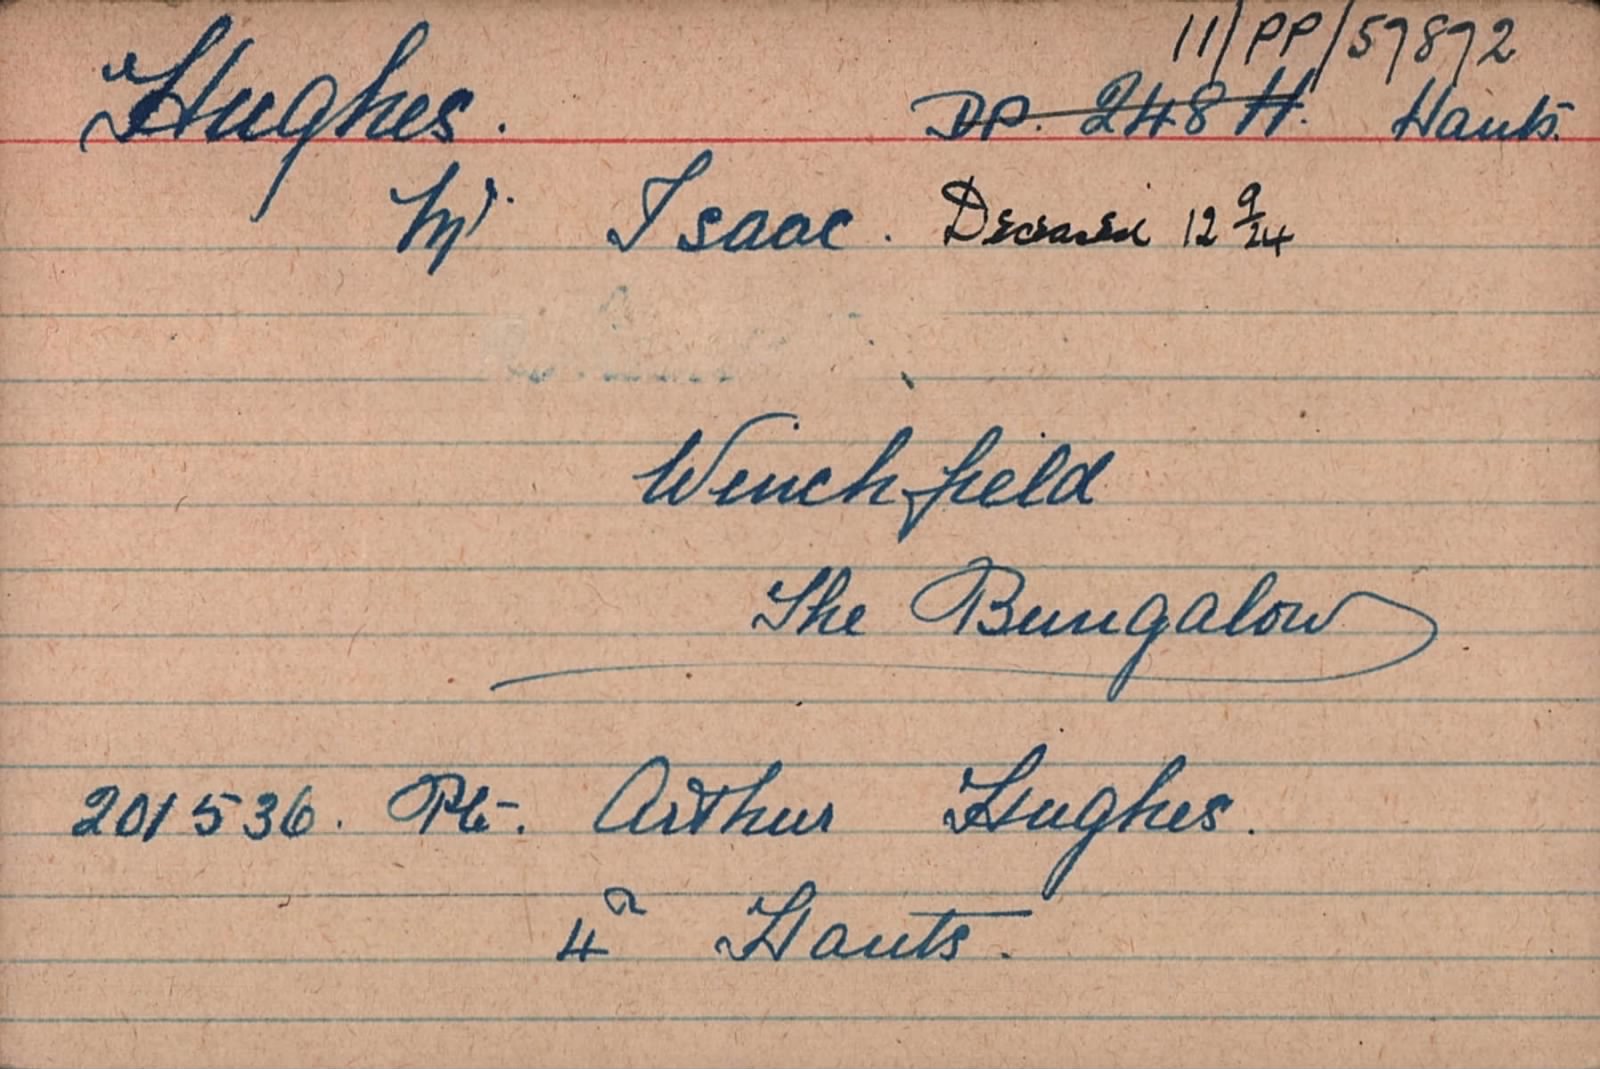 11/PP/57872
Hughes. DP. 248 H. Hants.
Mr. Isaac. Deceased 12 9/24
Winchfield
The Bungalow
201536. Pte. Arthur Hughes.
4th Hants.